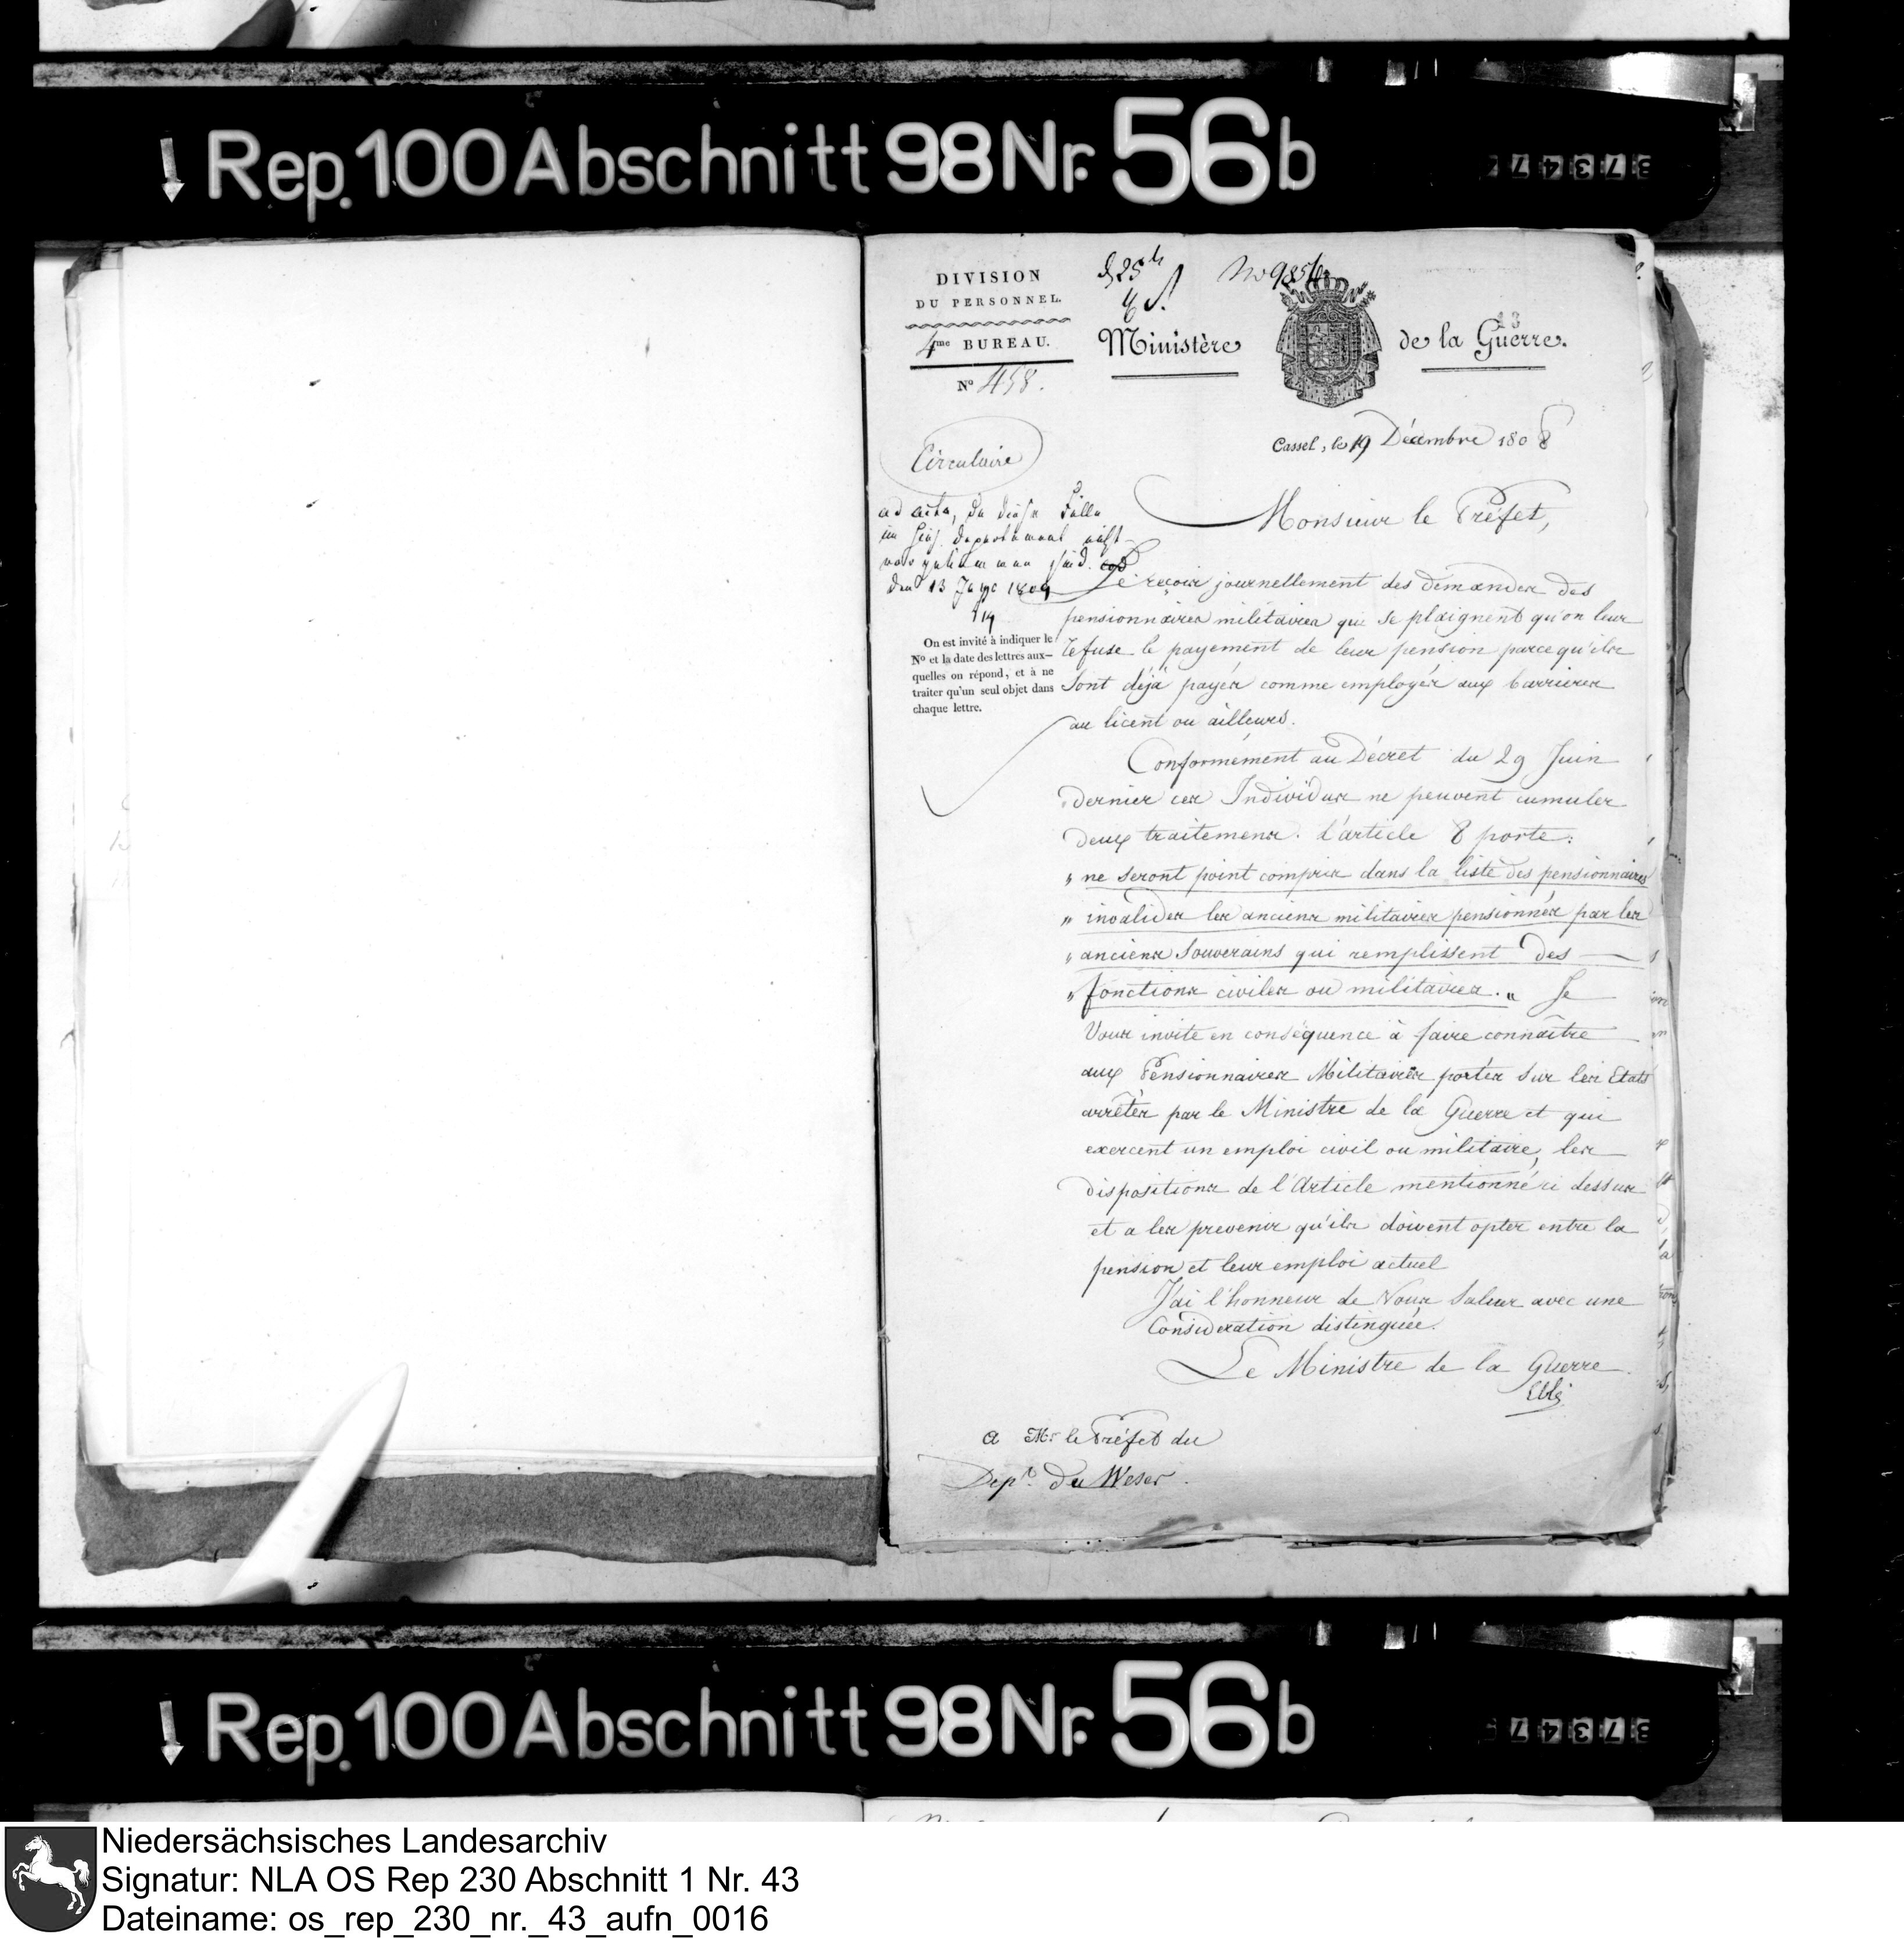 Rep. 100 Abschnitt 98 Nr. 56b
DIVISION
DU PERSONNEL.
4me BUREAU.
No 458.
No 985
Ministère de la Guerre.
13
Cassel, le 19 Décembre 1808
Circulaire
ad acta, da diese Fälle
im hies. Departement nicht
vorgekommen sind.
den 13 1809
On est invité à indiquer le
No et la date des lettres aux-
quelles on répond, et à ne
traiter qu'un seul objet dans
chaque lettre.
Monsieur le Préfet,
Je reçois journellement des demandes des
pensionnaires militaires qui se plaignent qu'on leur
refuse le payement de leur pension parce qu'ils
sont déjà payés comme employés aux barrieres
au licent ou ailleurs.
Conformément au Décret du 29 Juin
dernier ces Individus ne peuvent cumuler
deux traitemens. l'article 8 porte:
„ ne seront point compris dans la liste des pensionnaires
„ invalides les anciens militaires pensionnés par les
„ anciens Souverains qui remplissent des —
„ fonctions civiles ou militaires. „ Je
Vous invite en conséquence à faire connaître
aux Pensionnaires Militaires portés sur les Etats
arrêtés par le Ministre de la Guerre et qui
exercent un emploi civil ou militaire, les
dispositions de l'Article mentionné ci dessus
et a les prevenir qu'ils doivent opter entre la
pension et leur emploi actuel
J'ai l'honneur de Vous Saluer avec une
Consideration distinguée.
Le Ministre de la Guerre
Eblé
a Mr le Préfet du
Dept. du Weser.
Rep. 100 Abschnitt 98 Nr. 56b
Niedersächsisches Landesarchiv
Signatur: NLA OS Rep 230 Abschnitt 1 Nr. 43
Dateiname: os_rep_230_nr._43_aufn_0016